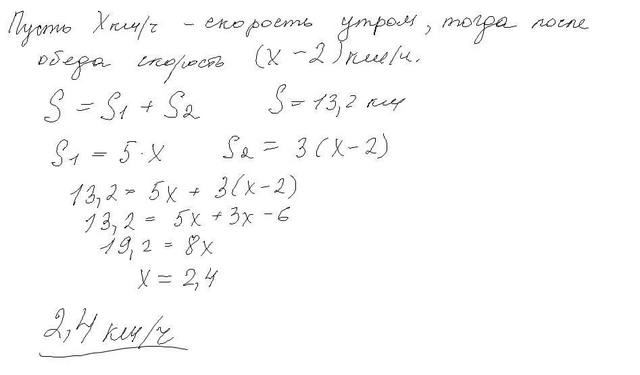 Пусть X км/ч - скорость утром, тогда после
обеда скорость (X-2) км/ч.
S = S1 + S2 S = 13,2 км
S1 = 5·X S2 = 3(X-2)
13,2 = 5X + 3(X-2)
13,2 = 5X + 3X - 6
19,2 = 8X
X = 2,4
2,4 км/ч